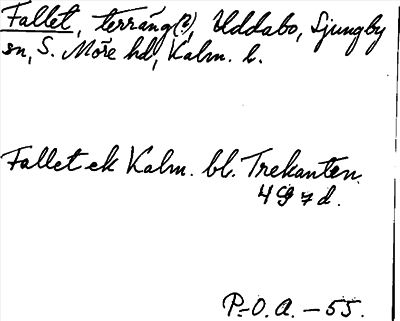 Fallet, terräng(?), Uddabo, Ljungby
sn, S. Möre hd, Kalm. l.
Fallet ek Kalm. bl. Trekanten
4 G 7 d.
P.-O. A. - 55.